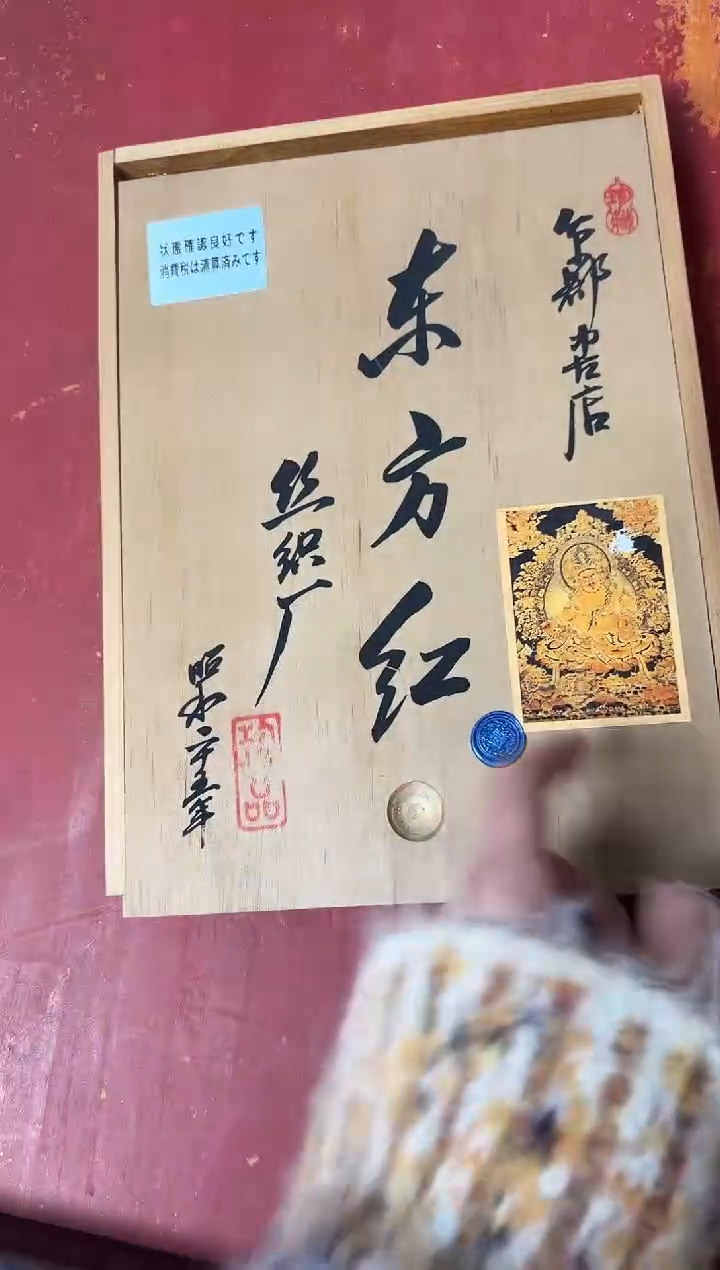 状態確認良好です
消費税は清算済みです
書店
东方红
丝织厂
昭和二十五年
珍品